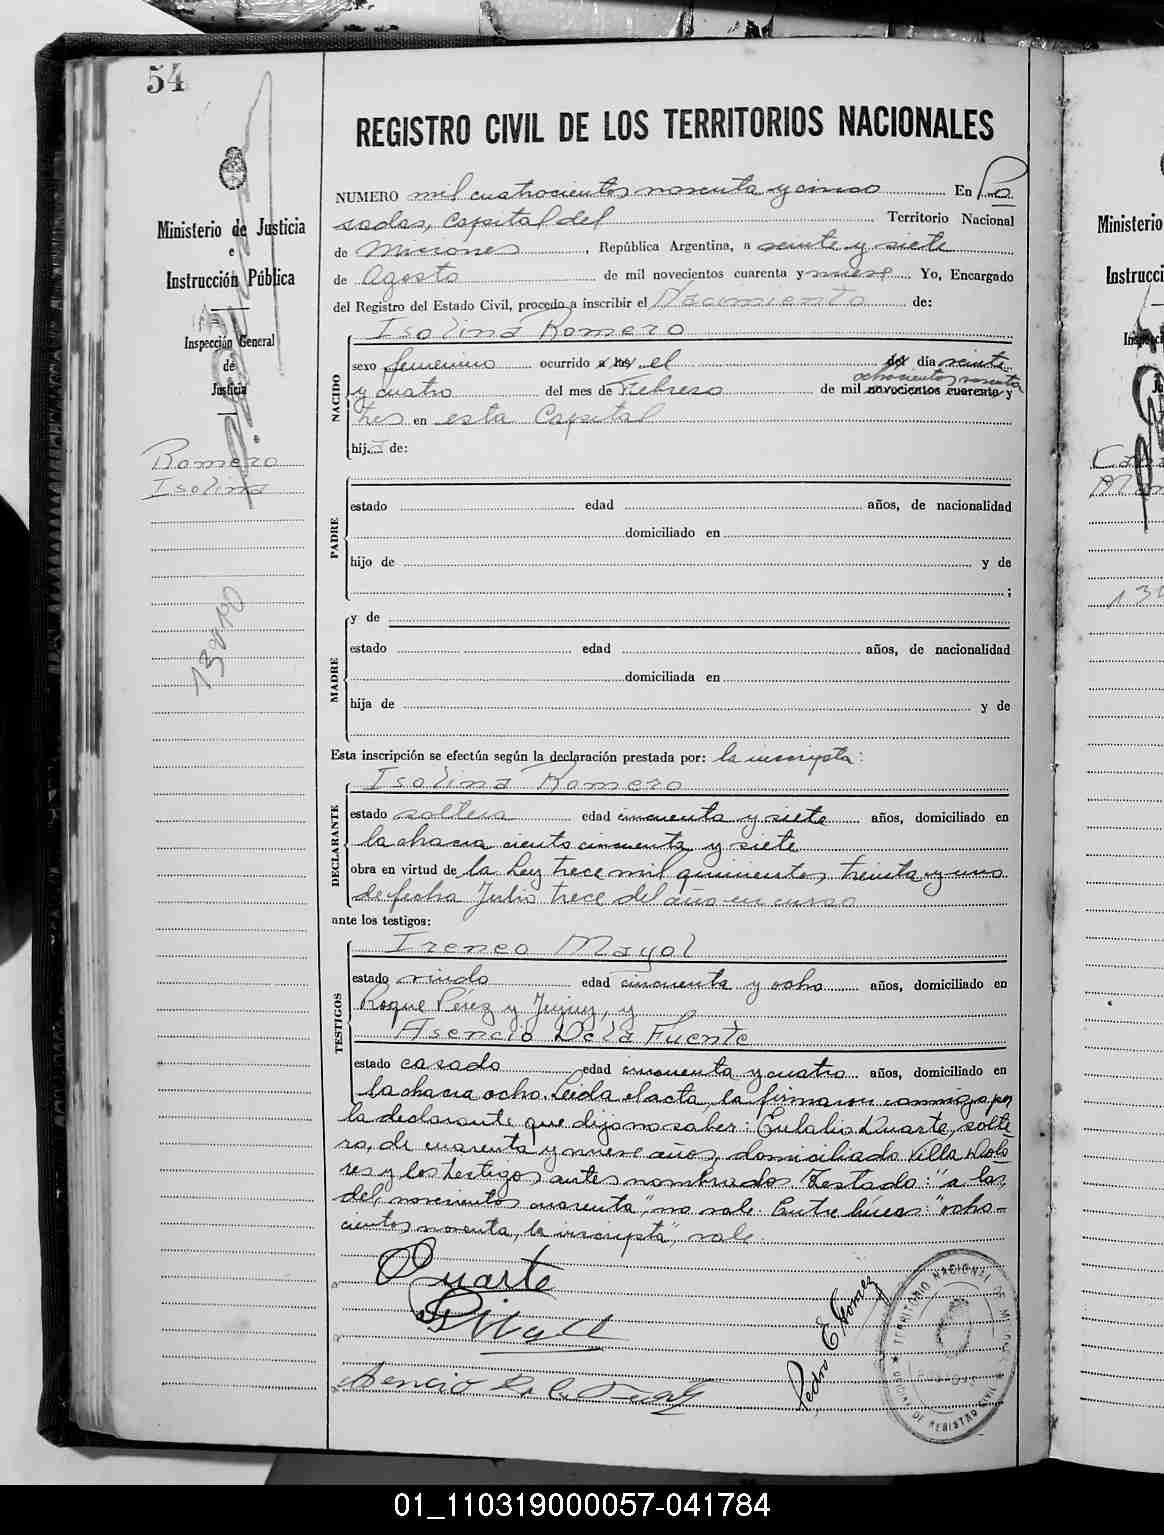 54
REGISTRO CIVIL DE LOS TERRITORIOS NACIONALES
Ministerio de Justicia
e
Instrucción Pública
Inspección General
de
Justicia
Romero
Isolina
NUMERO mil cuatrocientos noventa y cinco En Po
sadas, Capital del Territorio Nacional
de Misiones, República Argentina, a veinte y siete
de Agosto de mil novecientos cuarenta y nueve Yo, Encargado
del Registro del Estado Civil, procedo a inscribir el Nacimiento de:
Isolina Romero
NACIDO
sexo femenino ocurrido a las el del día veinte
ochocientos noventa
y cuatro del mes de Febrero de mil novecientos cuarenta y
tres en esta Capital
hija de:
PADRE
estado edad años, de nacionalidad
domiciliado en
hijo de y de
;
MADRE
y de
estado edad años, de nacionalidad
domiciliada en
hija de y de
Esta inscripción se efectúa según la declaración prestada por: la inscripta:
DECLARANTE
Isolina Romero
estado soltera edad cincuenta y siete años, domiciliado en
la chacra ciento cincuenta y siete
obra en virtud de la Ley trece mil quinientos treinta y uno
de fecha Julio trece del año en curso
ante los testigos:
TESTIGOS
Ireneo Mayol
estado viudo edad cincuenta y ocho años, domiciliado en
Roque Pérez y Jujuy, y
Asencio De la Fuente
estado casado edad cincuenta y cuatro años, domiciliado en
la chacra ocho. Leida el acta, la firmaron conmigo por
la declarante que dijo no saber: Eulalio Duarte, solte
ro, de cuarenta y nueve años, domiciliado Villa Dolo
res y los testigos antes nombrados. Testado: "a las,
del, novecientos cuarenta", no vale. Entre líneas: "ocho-
cientos noventa, la inscripta", vale.
Duarte
Pedro E Gomez
TERRITORIO NACIONAL DE
OFICINA DE REGISTRO CIVIL
Asencio De la Fuente
Ministerio
Instrucci
01_110319000057-041784